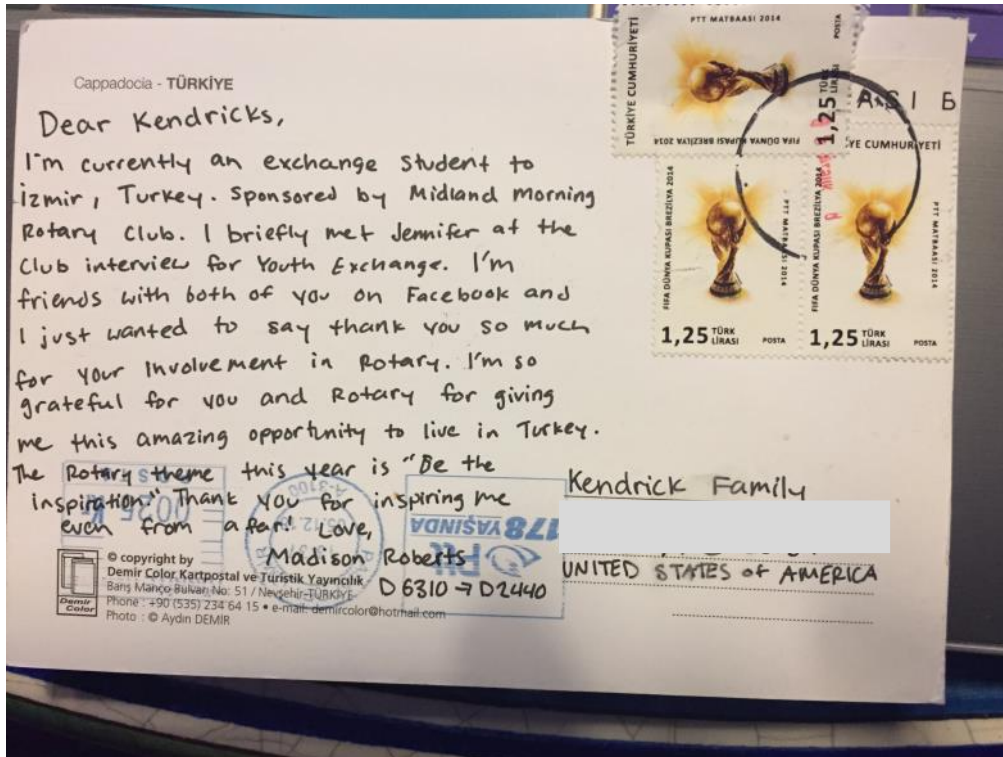 Cappadocia - TÜRKİYE
Dear Kendricks,
I'm currently an exchange student to
İzmir, Turkey. Sponsored by Midland Morning
Rotary Club. I briefly met Jennifer at the
Club interview for Youth Exchange. I'm
friends with both of you on Facebook and
I just wanted to say thank you so much
for your involvement in Rotary. I'm so
grateful for you and Rotary for giving
me this amazing opportunity to live in Turkey.
The Rotary theme this year is "Be the
inspiration." Thank you for inspiring me
even from afar! Love,
Madison Roberts
D6310 → D2440
© copyright by
Demir Color Kartpostal ve Turistik Yayıncılık
Barış Manço Bulvarı No: 51 / Nevşehir-TÜRKİYE
Phone : +90 (535) 234 64 15 • e-mail: demircolor@hotmail.com
Photo : © Aydın DEMİR
Demir
Color
PTT MATBAASI 2014
TÜRKİYE CUMHURİYETİ
POSTA
1,25 TÜRK LİRASI
FIFA DÜNYA KUPASI BREZİLYA 2014
A S I B
YE CUMHURİYETİ
FIFA DÜNYA KUPASI BREZİLYA 2014
PTT MATBAASI 2014
1,25 TÜRK LİRASI POSTA
FIFA DÜNYA KUPASI BREZİLYA 2014
PTT MATBAASI 2014
1,25 TÜRK LİRASI POSTA
178 YAŞINDA
Ptt
Kendrick Family
UNITED STATES of AMERICA